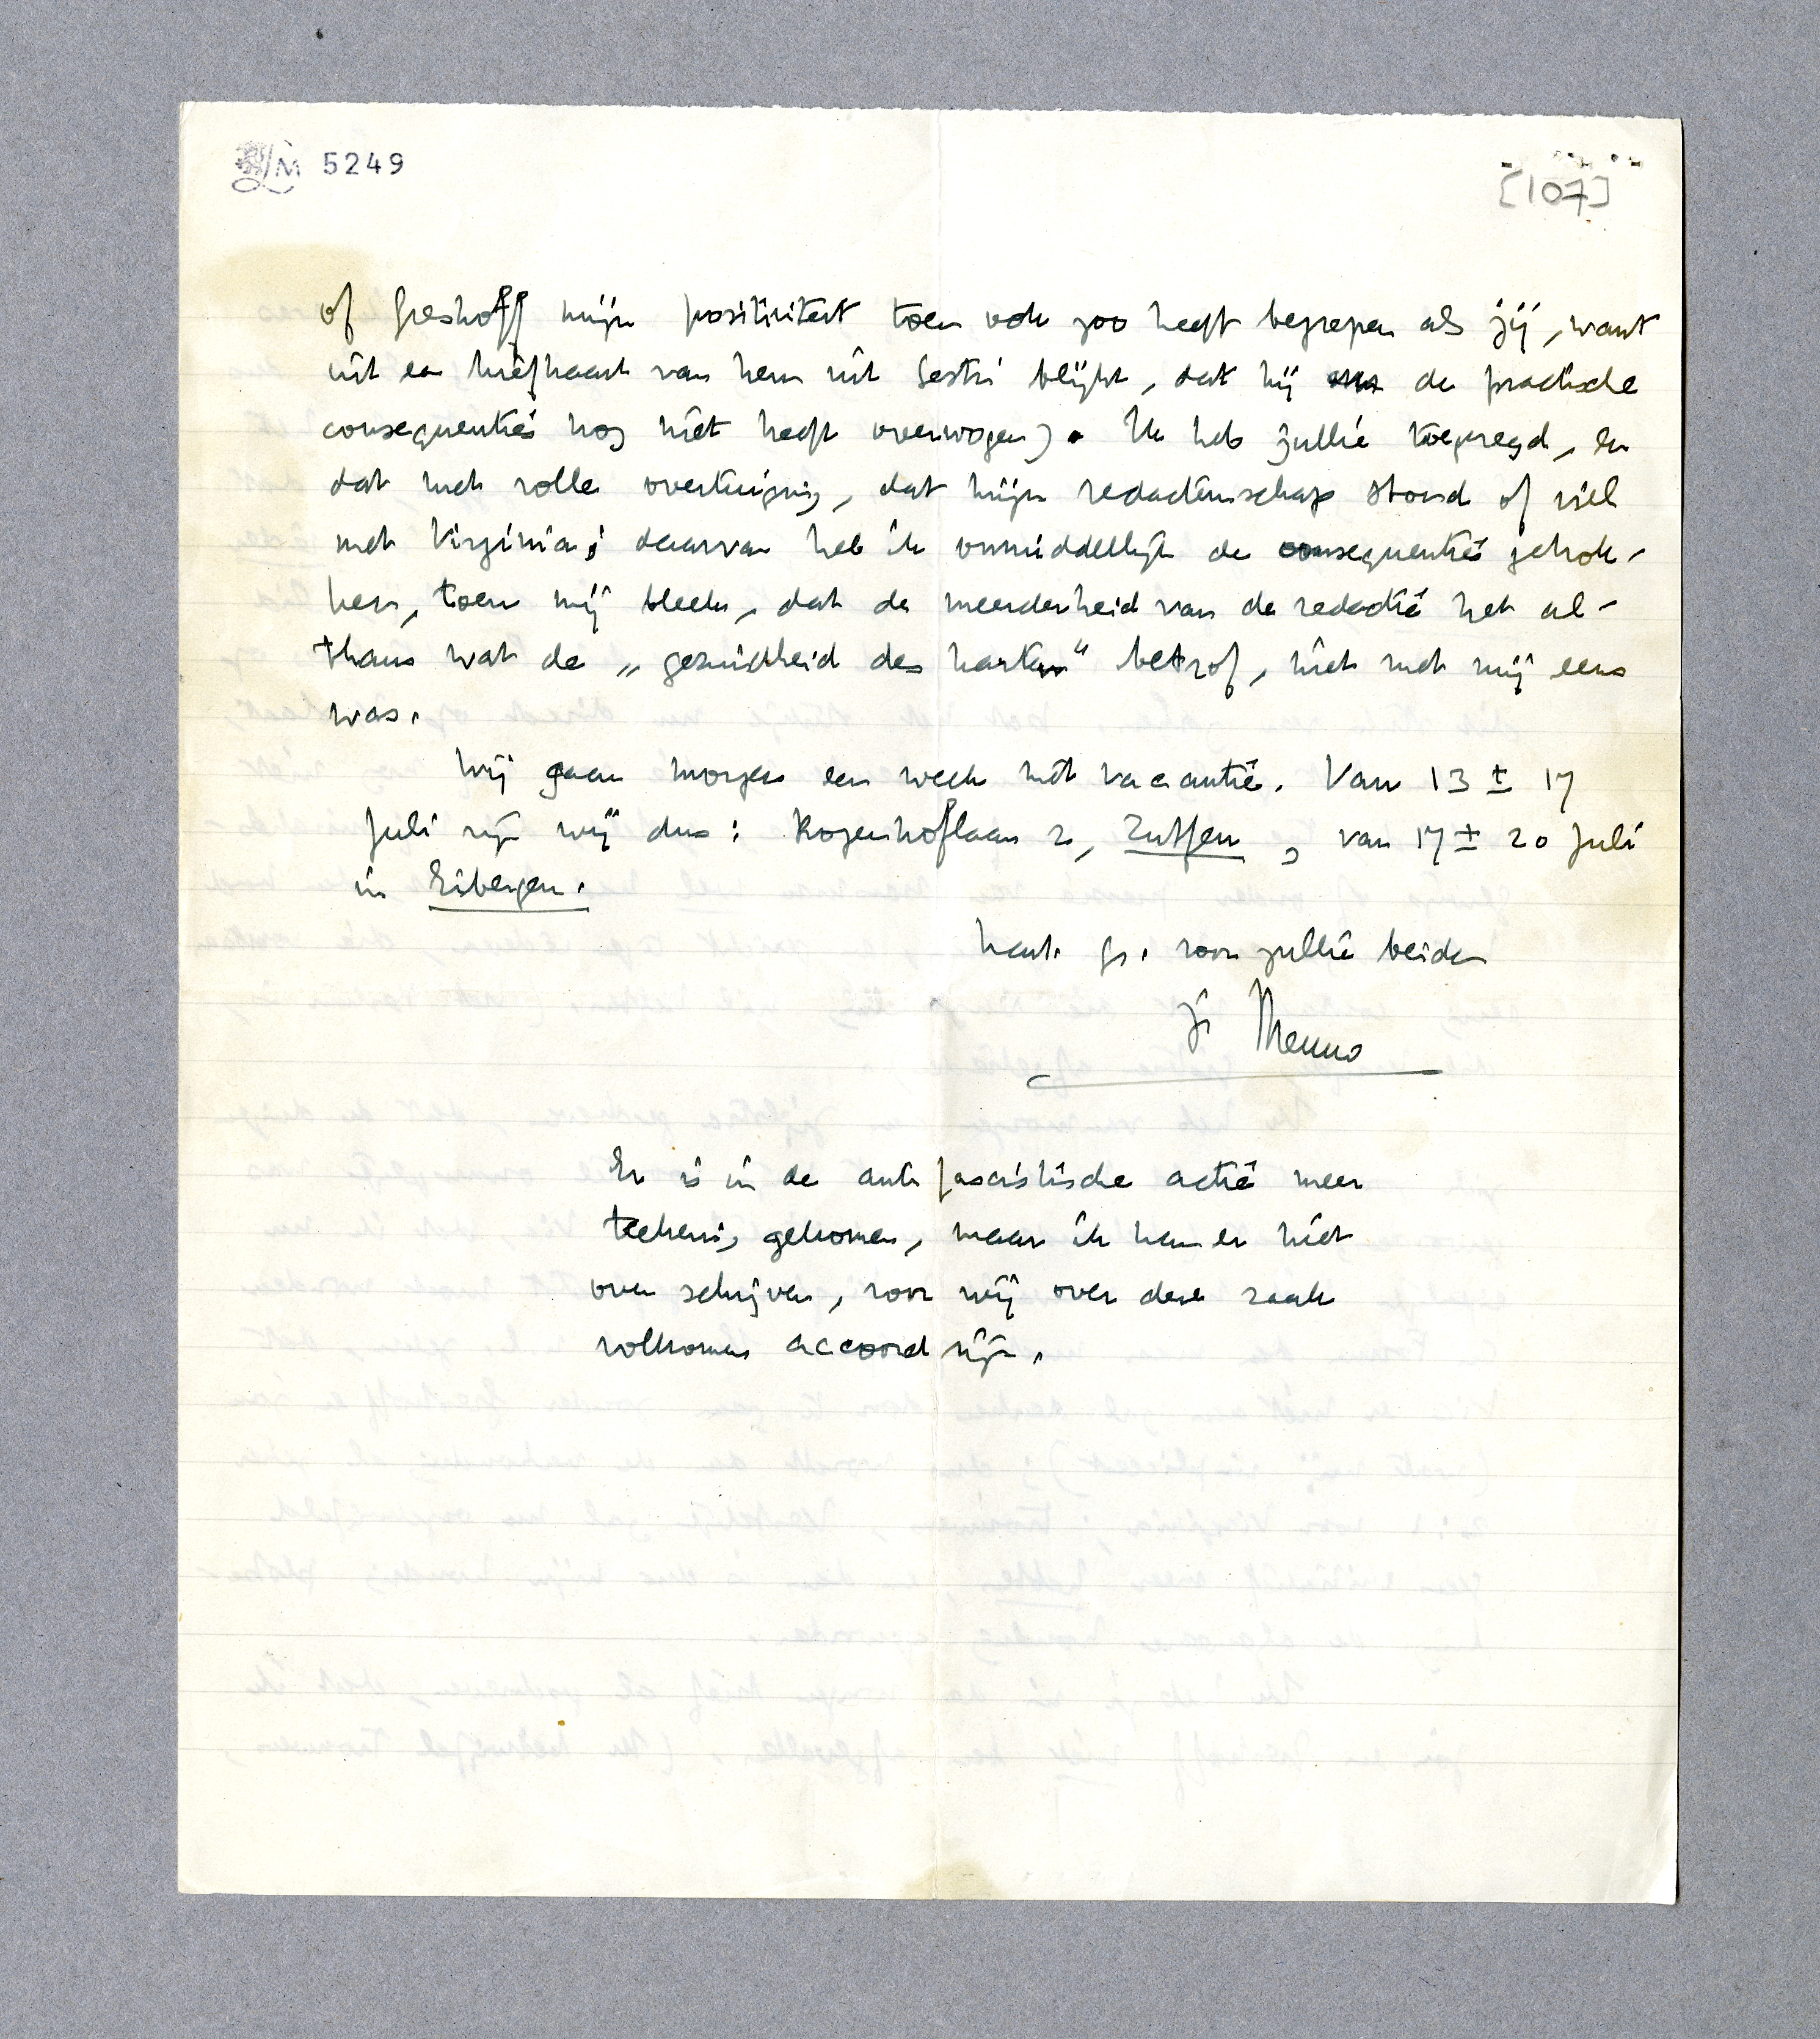 LM 5249
[107]
of Greshoff mijn positiviteit toen ook zoo heeft begrepen als jij, want
uit een briefkaart van hem uit Sestri blijkt, dat hij de practische
consequenties nog niet heeft overwogen). Ik heb jullie toegezegd, en
dat met volle overtuiging, dat mijn redacteurschap stond of viel
met Virginia; daarvan heb ik onmiddellijk de consequenties getrok-
ken, toen mij bleek, dat de meerderheid van de redactie het al-
thans wat de „gezindheid des harten" betrof, niet met mij eens
was.
Wij gaan morgen een week met vacantie. Van 13 ± 17
Juli zijn wij dus: Rozenhoflaan 2, Zutfen, van 17 ± 20 Juli
in Eibergen.
hart. gr. voor jullie beiden
je Menno
Er is in de anti fascistische actie meer
teekening gekomen, maar ik kan er niet
over schrijven, voor wij over deze zaak
volkomen accoord zijn.